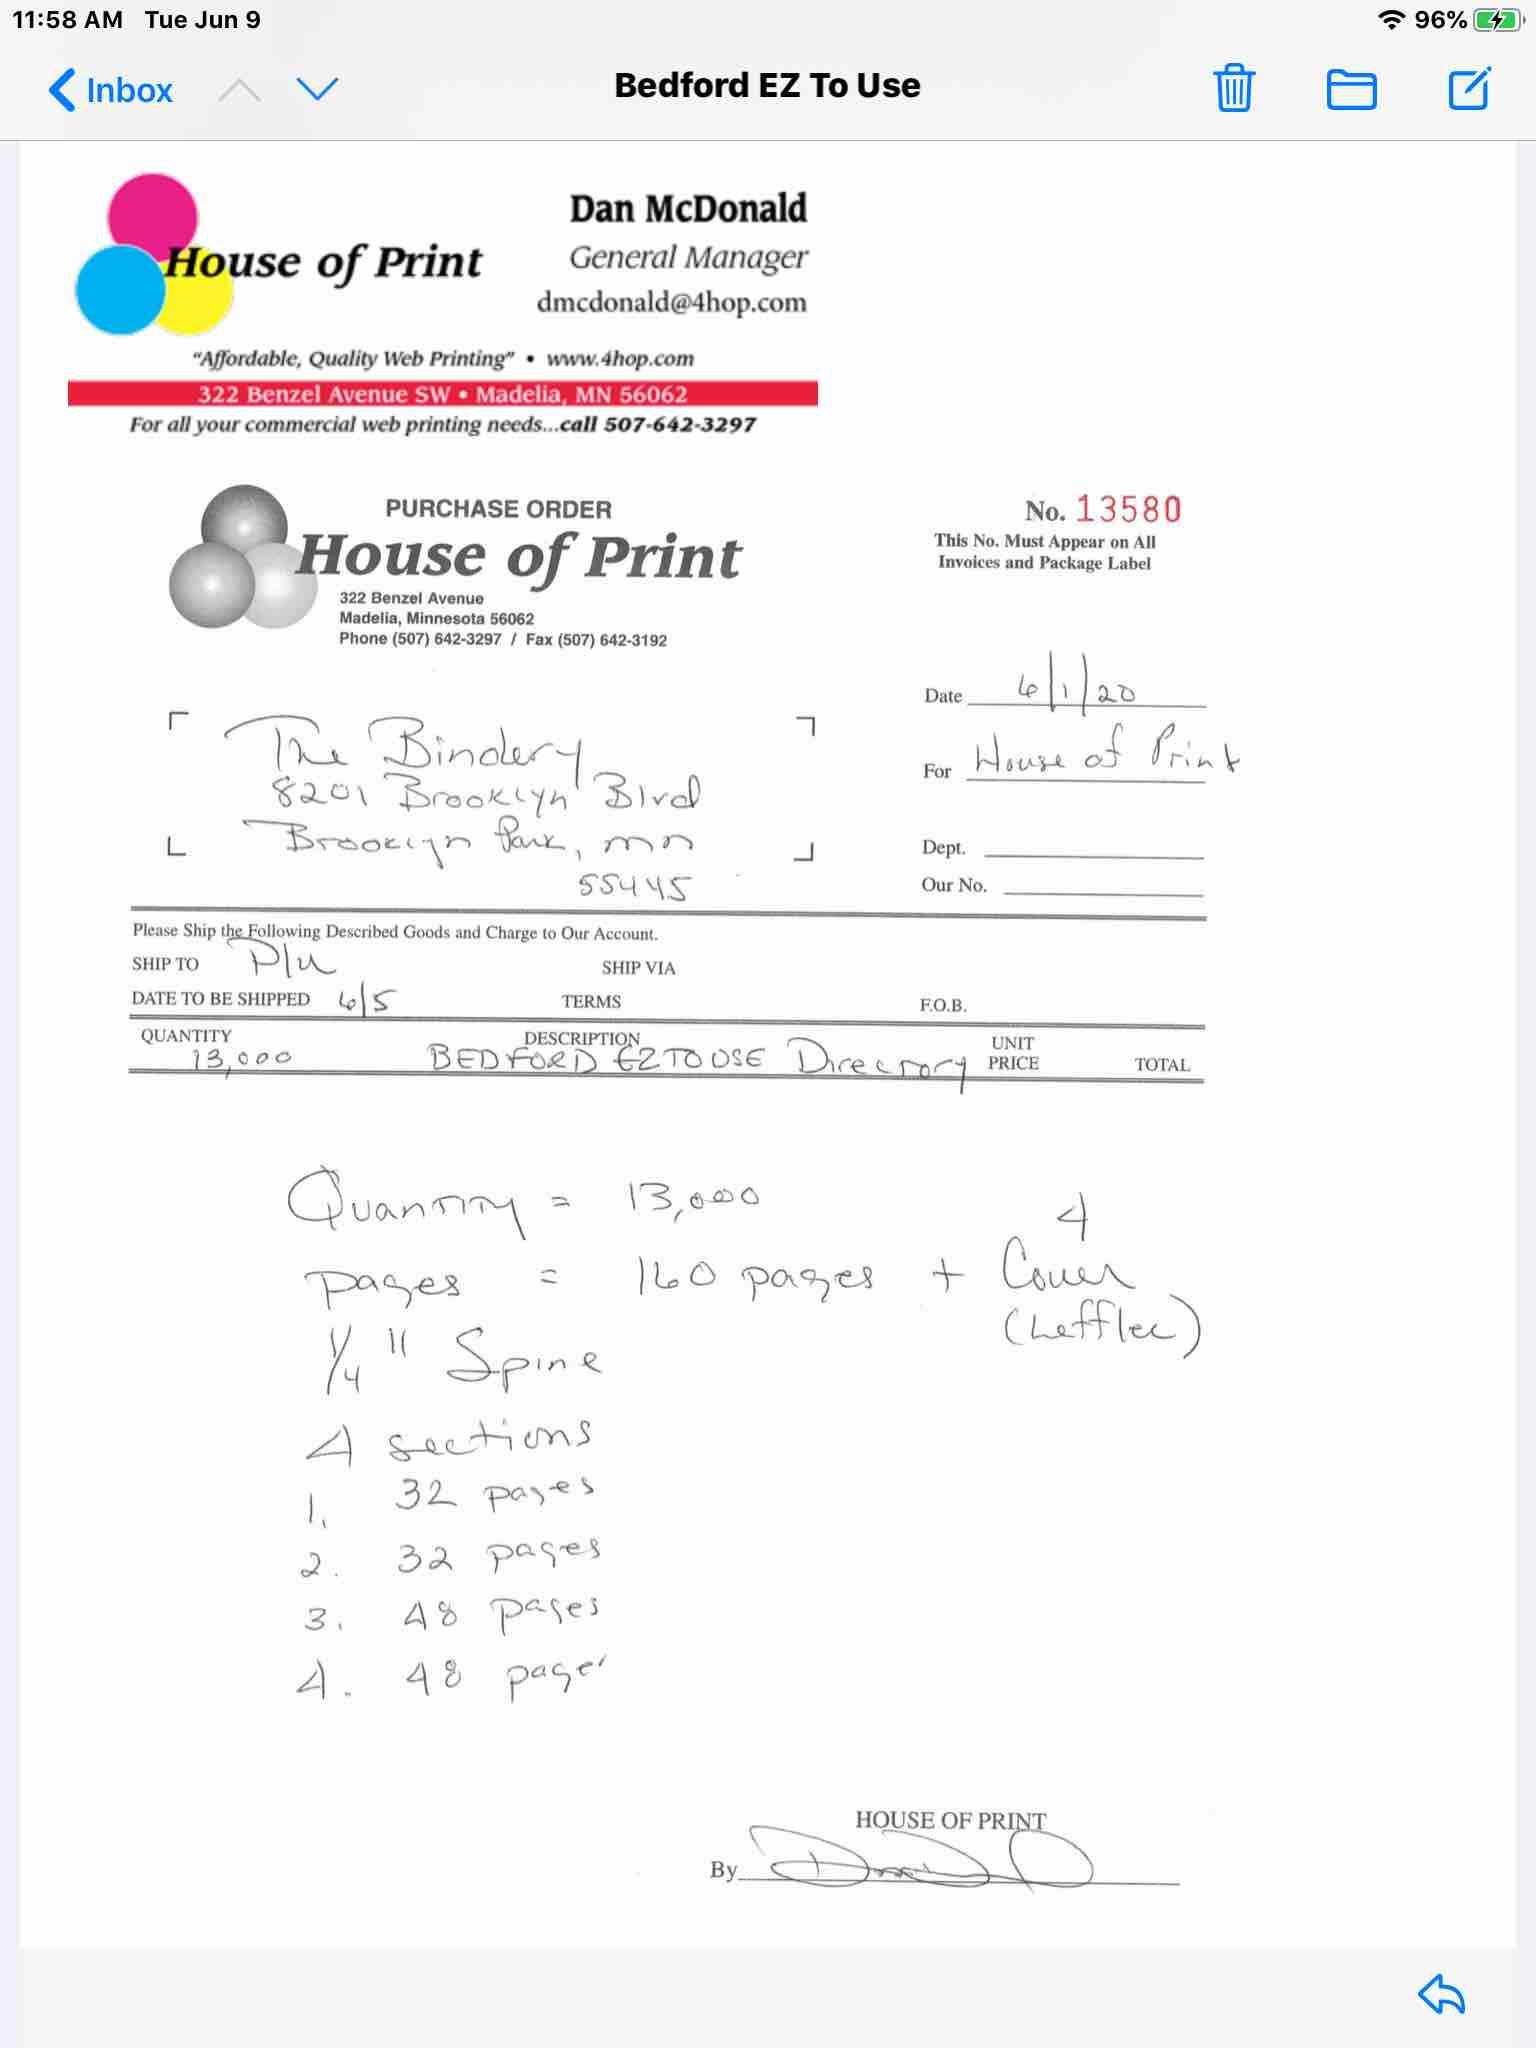 11:58 AM Tue Jun 9
96%
Inbox
Bedford EZ To Use
House of Print
Dan McDonald
General Manager
dmcdonald@4hop.com
“Affordable, Quality Web Printing” • www.4hop.com
322 Benzel Avenue SW • Madelia, MN 56062
For all your commercial web printing needs...call 507-642-3297
PURCHASE ORDER
House of Print
322 Benzel Avenue
Madelia, Minnesota 56062
Phone (507) 642-3297 / Fax (507) 642-3192
No. 13580
This No. Must Appear on All
Invoices and Package Label
Date 6/1/20
For House of Print
Dept.
Our No.
The Bindery
8201 Brooklyn Blvd
Brooklyn Park, mn
55445
Please Ship the Following Described Goods and Charge to Our Account.
SHIP TO P/u SHIP VIA
DATE TO BE SHIPPED 6/5 TERMS F.O.B.
QUANTITY DESCRIPTION UNIT PRICE TOTAL
13,000 BEDFORD EZ TO USE Directory
Quantity = 13,000
4
pages = 160 pages + Cover
(Leffler)
1/4" Spine
4 sections
1. 32 pages
2. 32 pages
3. 48 pages
4. 48 pages
HOUSE OF PRINT
By